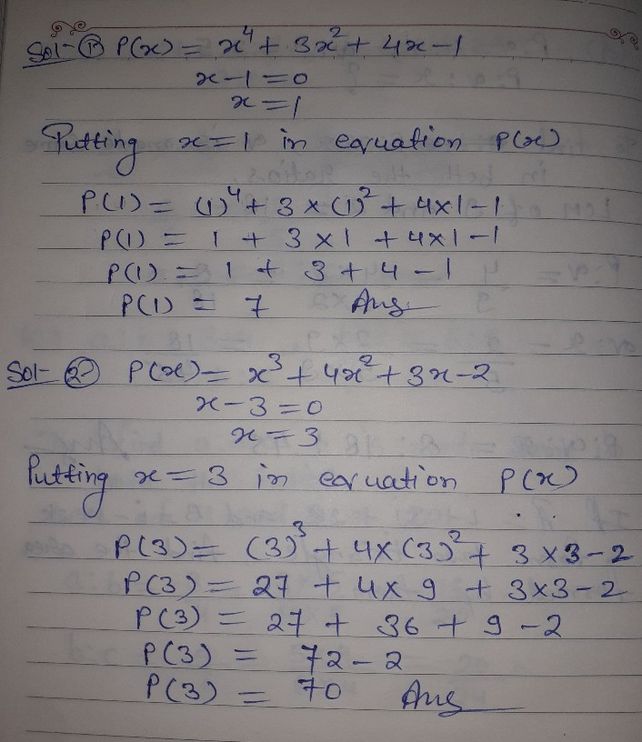 Sol-① P(x) = x⁴ + 3x² + 4x - 1
x - 1 = 0
x = 1
Putting x = 1 in equation P(x)
P(1) = (1)⁴ + 3 × (1)² + 4×1 - 1
P(1) = 1 + 3 × 1 + 4×1 - 1
P(1) = 1 + 3 + 4 - 1
P(1) = 7 Ans
Sol- ② P(x) = x³ + 4x² + 3x - 2
x - 3 = 0
x = 3
Putting x = 3 in equation P(x)
P(3) = (3)³ + 4×(3)² + 3 × 3 - 2
P(3) = 27 + 4 × 9 + 3×3 - 2
P(3) = 27 + 36 + 9 - 2
P(3) = 72 - 2
P(3) = 70 Ans